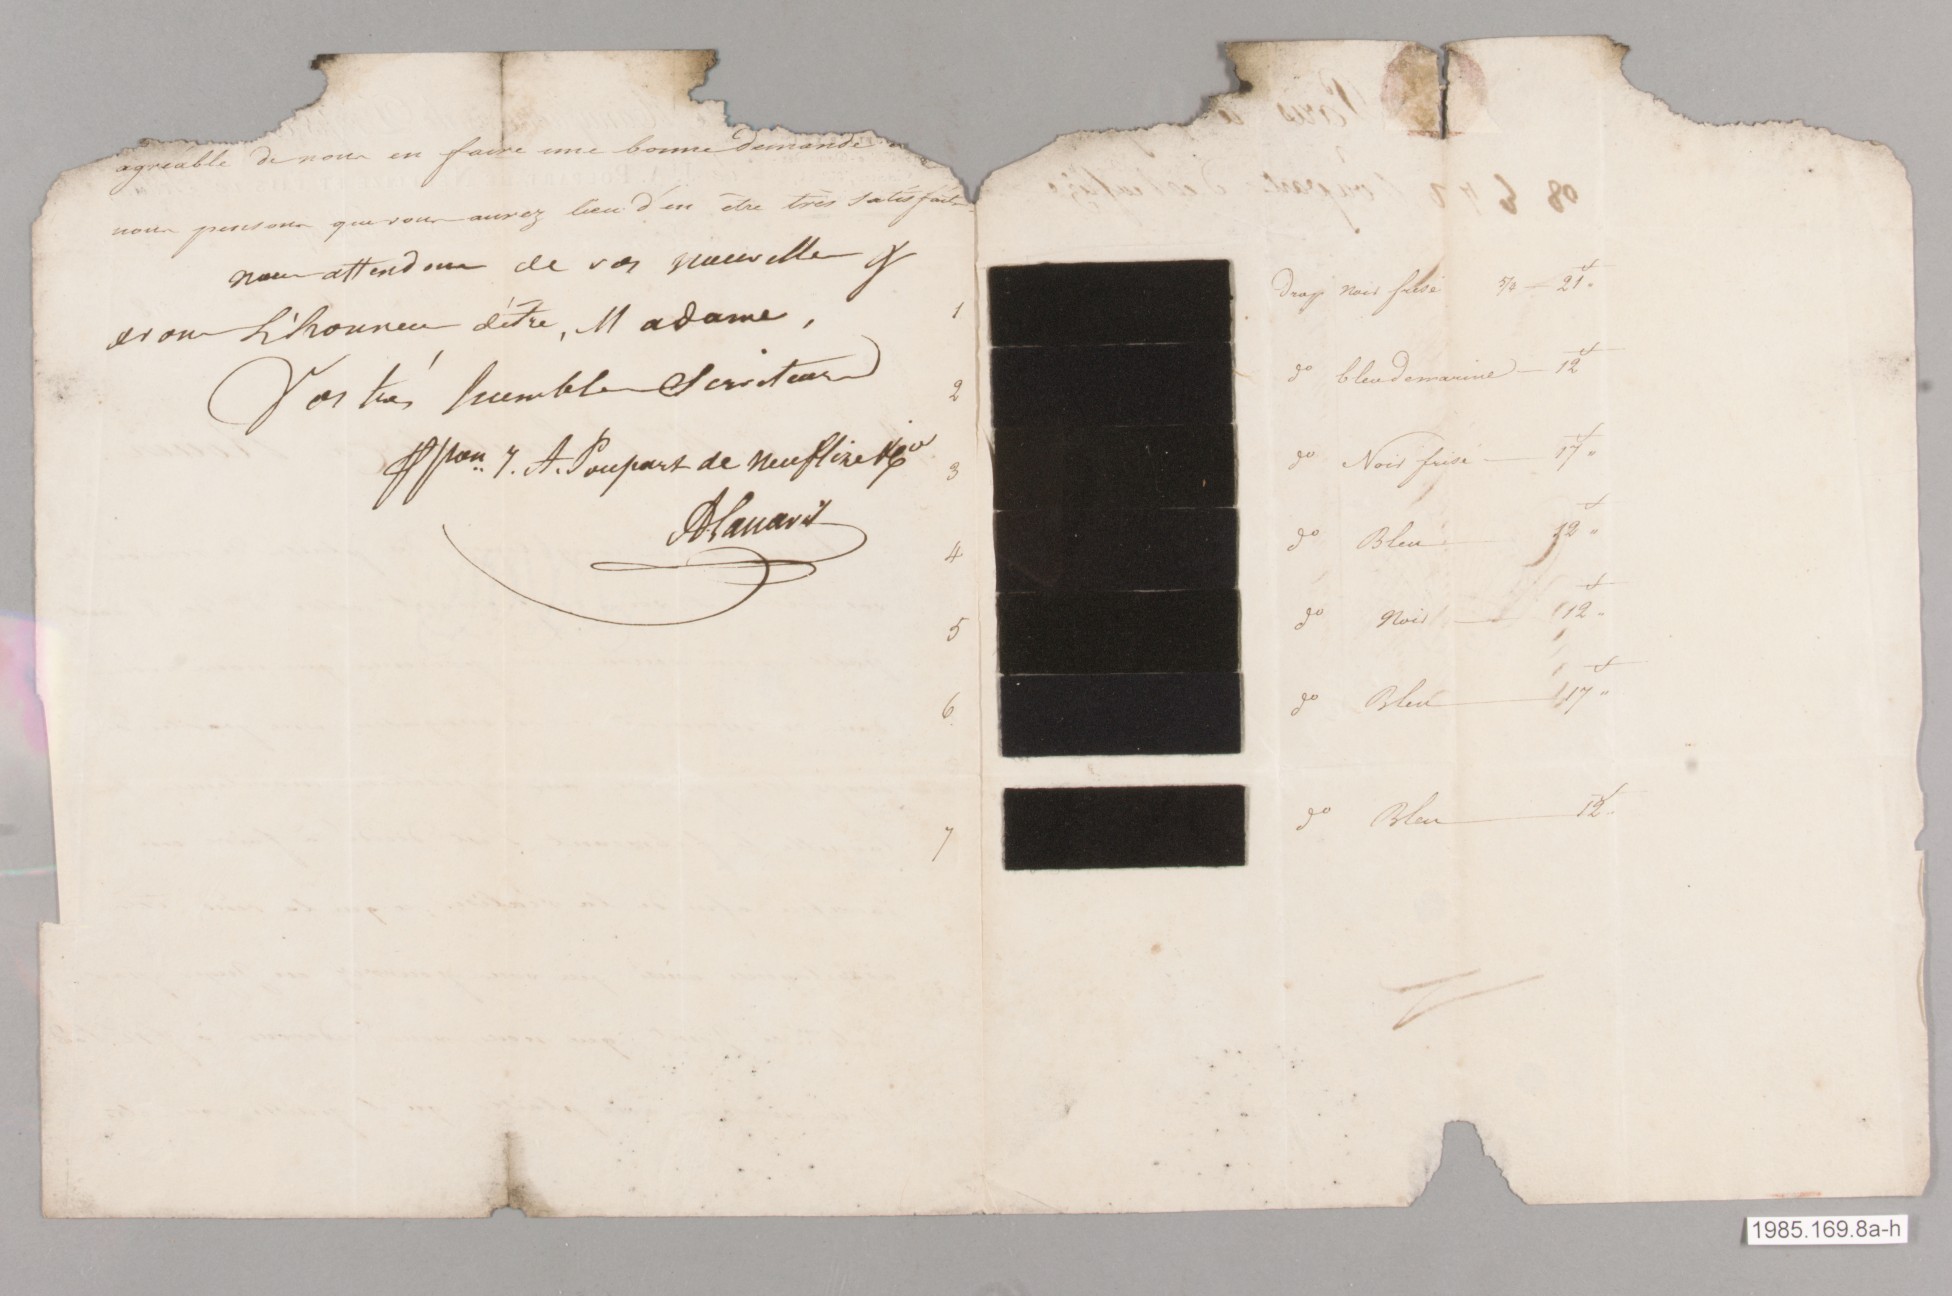 agréable de nous en faire une bonne demande
nous pensons que vous aurez lieu d'en être très satisfaite
nous attendons de vos nouvelles &
avons L'honneur d'être, Madame,
Vos très humbles Serviteurs
Ppon J. A. Poupart de Neuflize & Co
1 Drap Noir frisé 5/4 — 21"
2 do bleu de marine — 12
3 do Noir frisé — 17"
4 do Bleu — 12"
5 do Noir — 12"
6 do Bleu — 17"
7 do Bleu — 12"
1985.169.8a-h